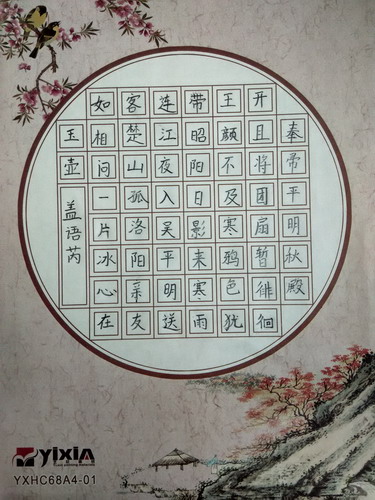 奉帚平明秋殿
开且将团扇暂徘徊
王颜不及寒鸦色犹
带昭阳日影来寒雨
连江夜入吴平明送
客楚山孤洛阳亲友
如相问一片冰心在
玉壶
盖语芮
yixin
YXHC68A4-01